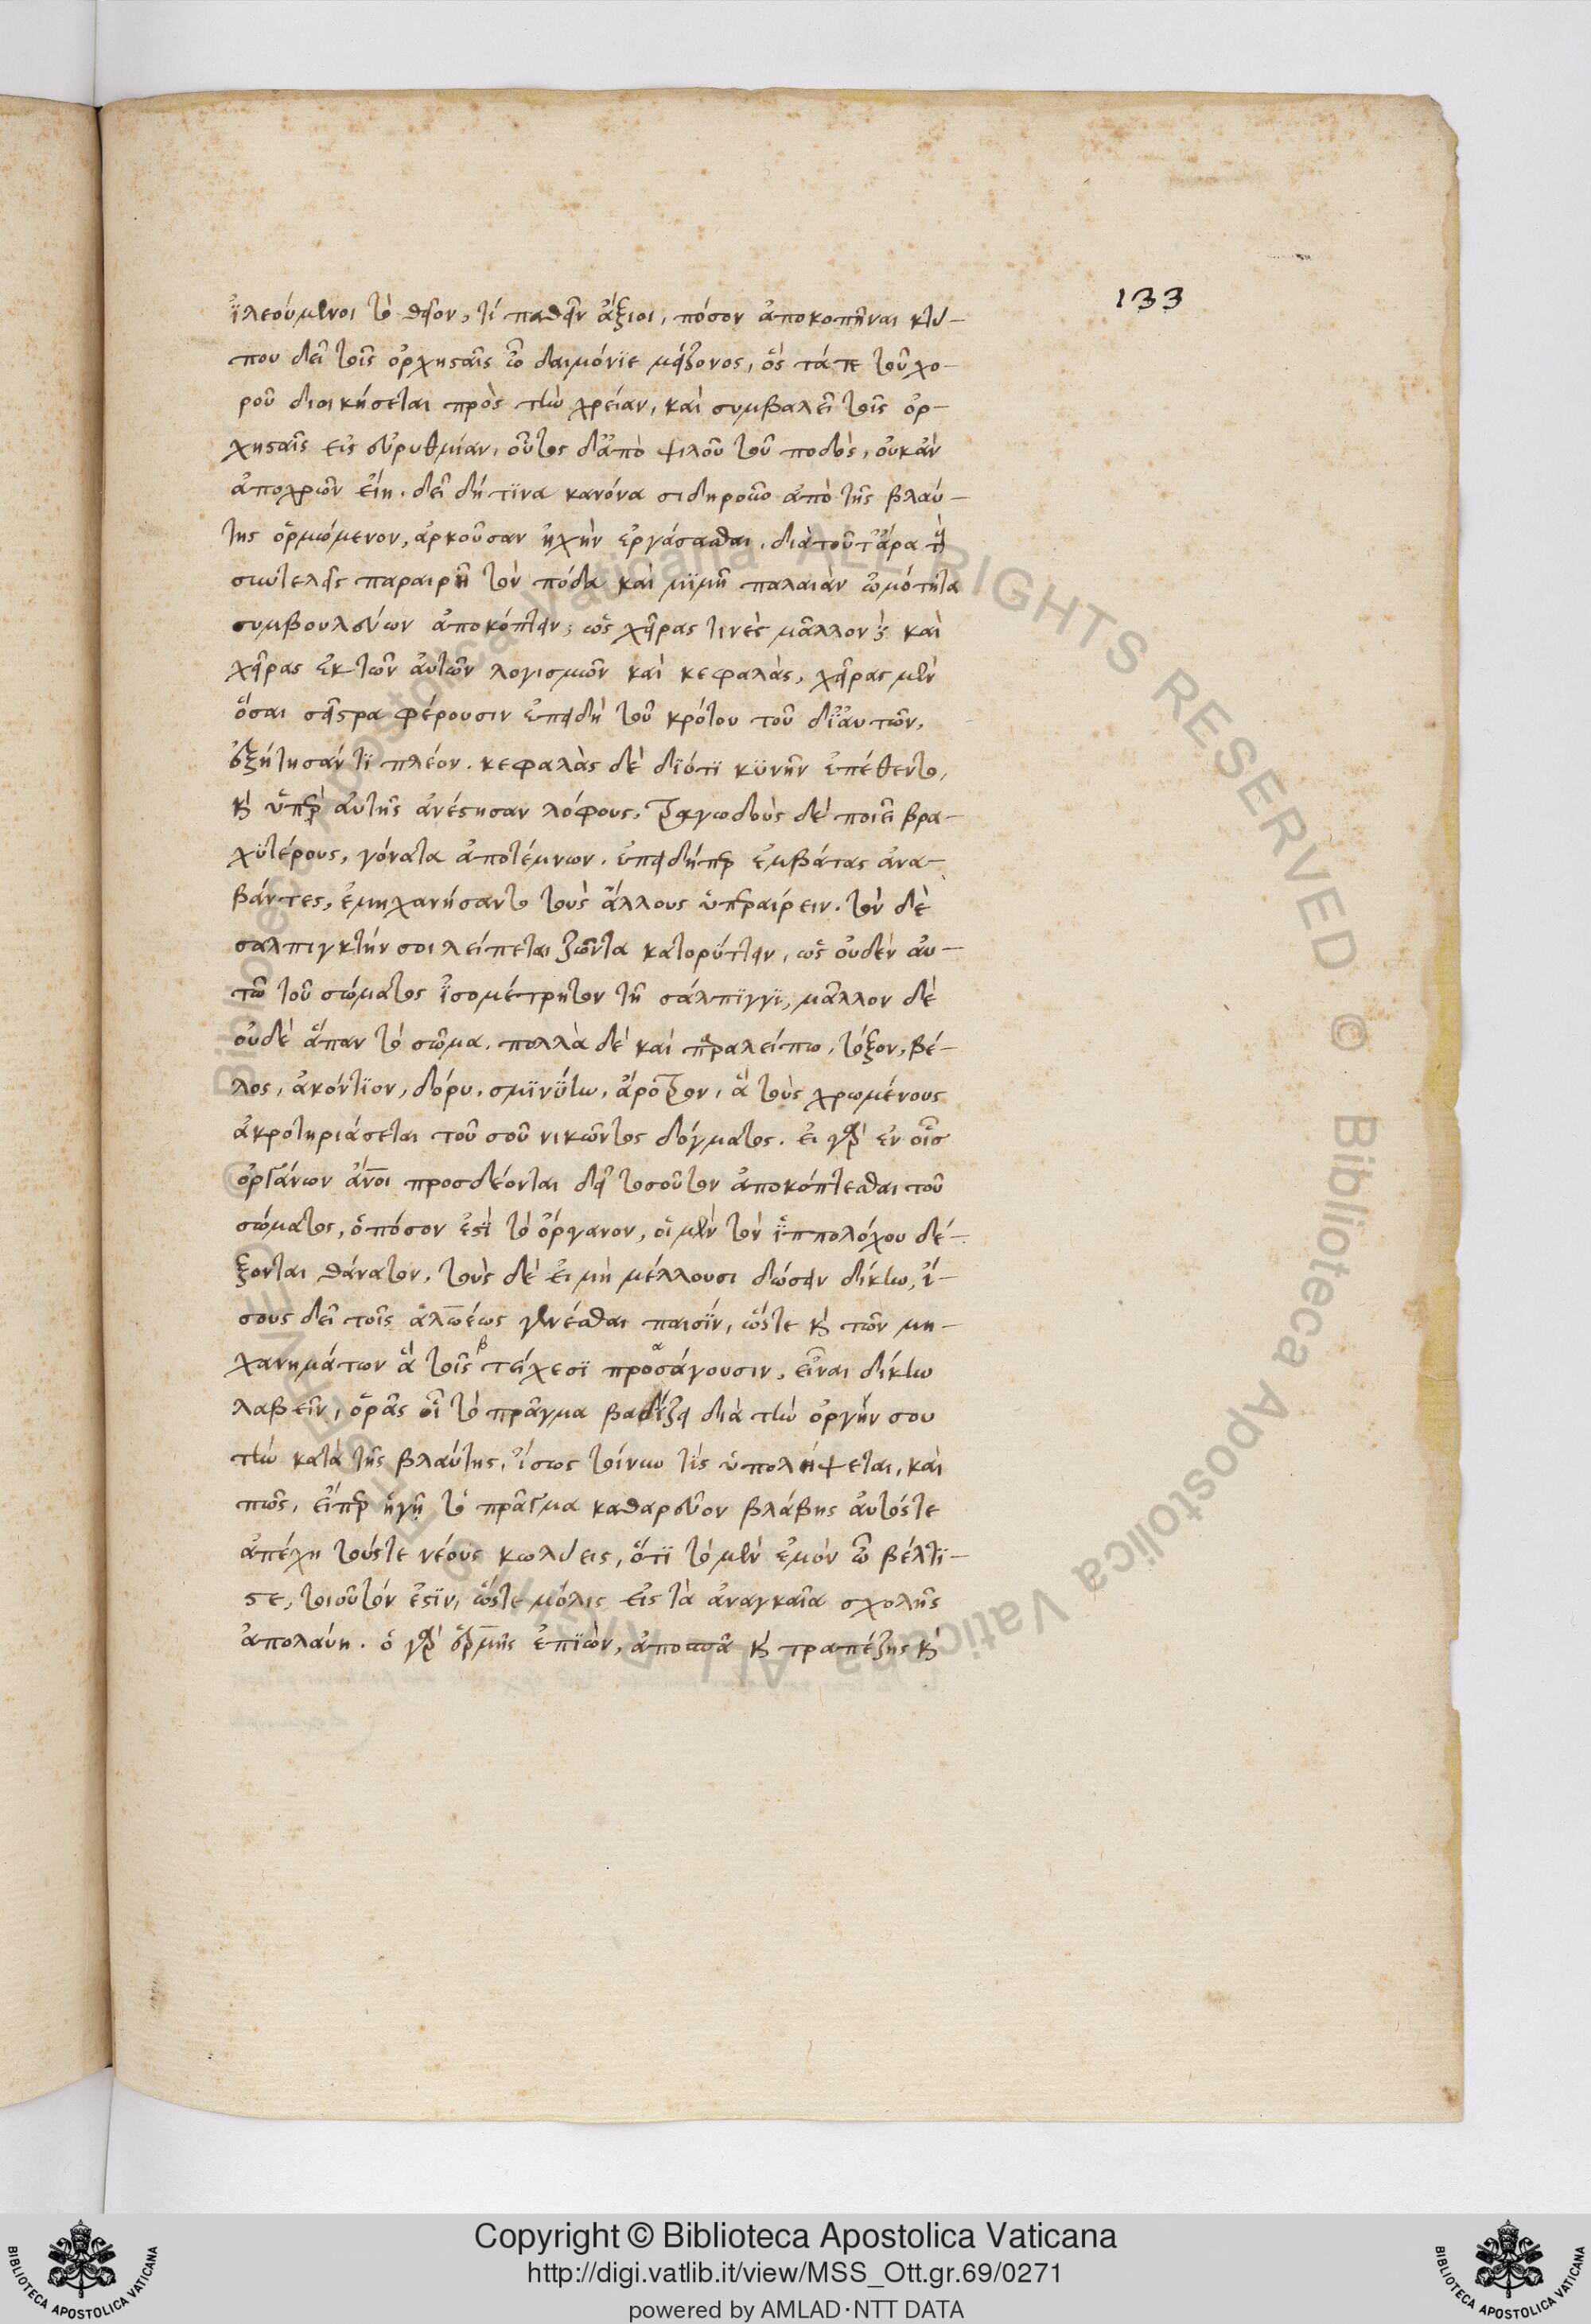 133
ἱλεούμενοι τὸ θεῖον, τί παθεῖν ἄξιοι, πόσον ἀποκοπῆναι κτύ-
που δεῖ τοῖς ὀρχησταῖς ὦ δαιμόνιε μείζονος, ὃς τά τε τοῦ χο-
ροῦ διοικήσεται πρὸς τὴν χρείαν, καὶ συμβαλεῖ τοῖς ὀρ-
χησταῖς εἰς εὐρυθμίαν, οὗτος δ' ἀπὸ ψιλοῦ τοῦ ποδὸς, οὐκ ἂν
ἀποχρῶν εἴη. δεῖ δή τινα κανόνα σιδηροῦν ἀπὸ τῆς βλαύ-
της ὁρμώμενον, ἀρκοῦσαν ἠχὴν ἐργάσασθαι. διὰ τοῦτ' ἄρα
συντελεῖς παραιρῇ τὸν πόδα καὶ μιμῇ παλαιὰν ὠμότητα
συμβουλεύων ἀποκόπτειν, ὡς χεῖρας τινὲς μᾶλλον καὶ
χεῖρας ἐκ τῶν αὐτῶν λογισμῶν καὶ κεφαλὰς, χεῖρας μὲν
ὅσαι σεῖστρα φέρουσιν ἐπειδὴ τοῦ κρότου τοῦ δι' αὐτῶν,
ἐζήτησάν τι πλέον. κεφαλὰς δὲ διότι κυνῆν ἐπέθεντο,
κ ὑπὲρ αὐτῆς ἀνέστησαν λόφους, τραγωδοὺς δὲ ποιεῖ βρα-
χυτέρους, γόνατα ἀποτέμνων. ἐπειδήπερ ἐμβάτας ἀνα-
βάντες, ἐμηχανήσαντο τοὺς ἄλλους ὑπεραίρειν. τὸν δὲ
σαλπιγκτήν σοι λείπεται ζῶντα κατορύττειν, ὡς οὐδὲν αὐ-
τῶ τοῦ σώματος ἰσομέτρητον τῇ σάλπιγγι, μᾶλλον δὲ
οὐδὲ ἅπαν τὸ σῶμα. πολλὰ δὲ καὶ παραλείπω, τόξον, βέ-
λος, ἀκόντιον, δόρυ, σμινύην, ἄροτρον, ἃ τοὺς χρωμένους
ἀκρωτηριάσεται τοῦ σοῦ νικῶντος δόγματος. εἰ γὰρ ἐν οἷς
ὀργάνων ἄνοι προσδέονται δεῖ τοσοῦτον ἀποκόπτεσθαι τοῦ
σώματος, ὁπόσον ἐστὶ τὸ ὄργανον, οἱ μὲν τὸν ἱππολόχου δέ-
ξονται θάνατον, τοὺς δὲ εἰ μὴ μέλλουσι δώσειν δίκην, ἴ-
σους δεῖ τοῖς ἁλωέως γενέσθαι παισίν, ὥστε κ τῶν μη-
χανημάτων ἃ τοῖς τείχεσι προσάγουσιν, εἶναι δίκην
λαβεῖν, ὁρᾶς οἷ τὸ πρᾶγμα βαδίζει διὰ τὴν ὀργήν σου
τὴν κατὰ τῆς βλαύτης, ἴσως τοίνυν τίς ὑπολήψεται, καὶ
πῶς, εἴπερ ἡγῇ τὸ πρᾶγμα καθαρεῦον βλάβης αὐτός τε
ἀπέχῃ τούς τε νέους κωλύεις, ὅτι τὸ μὲν ἐμὸν ὦ βέλτι-
στε, τοιοῦτόν ἐστιν, ὥστε μόλις εἰς τὰ ἀναγκαῖα σχολῆς
ἀπολαύῃ. ὁ γὰρ ἑρμῆς ἐπιὼν, ἀποσπᾶ κ τραπέζης κ
Copyright © Biblioteca Apostolica Vaticana
http://digi.vatlib.it/view/MSS_Ott.gr.69/0271
powered by AMLAD·NTT DATA